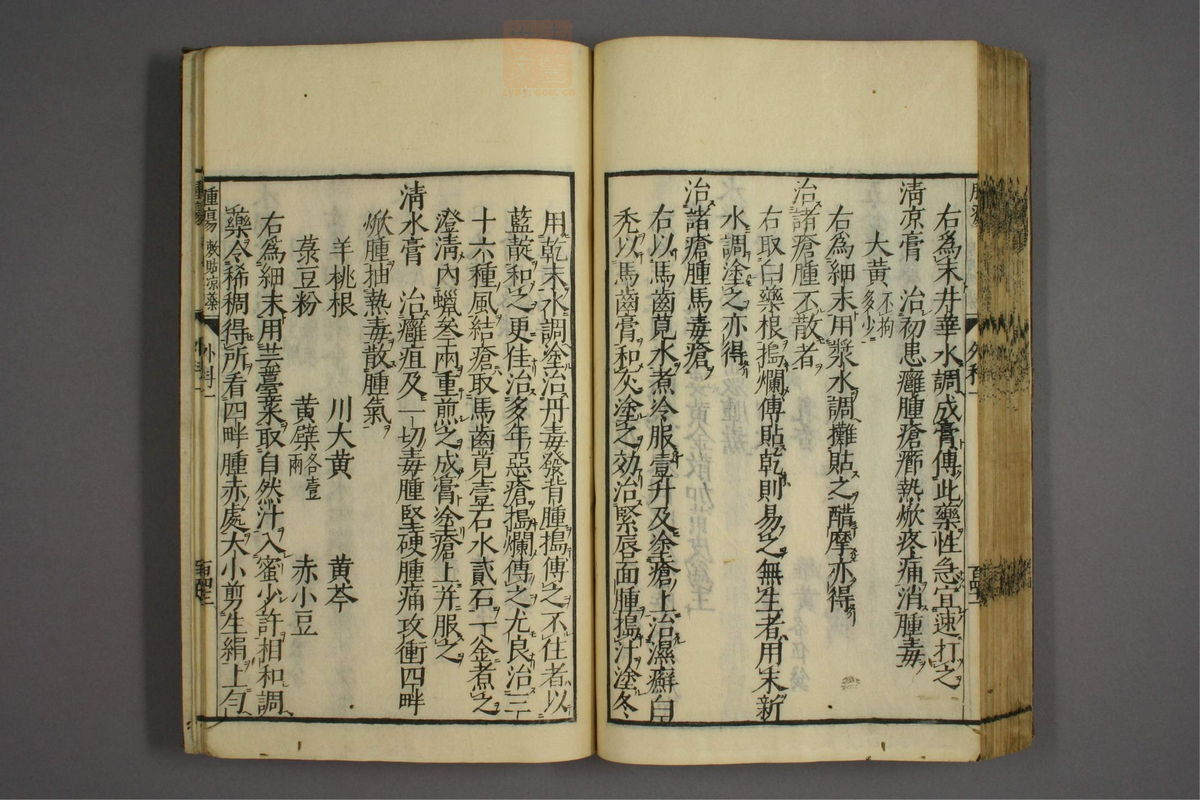 右為末井華水調成膏傅此藥性急宜速打之
清凉膏 治初患癰腫瘡癤熱焮疼痛消腫毒
大黄 不拘多少
右為細末用漿水調攤貼之醋摩亦得
治諸瘡腫不散者
右取白藥根搗爛傅貼乾則易之無生者用末新
水調塗之亦得
治諸瘡腫馬毒瘡
右以馬齒莧水煮冷服壹升及塗瘡上治濕癬白
禿以馬齒膏和灰塗之効治緊唇面腫搗汁塗冬
用乾末水調塗治丹毒發背腫搗傅之不住者以
藍靛和之更佳治多年惡瘡搗爛傅之尤良治三
十六種風結瘡取馬齒莧壹石水貳石一金煮之
澄清内蠟叄兩重煎之成膏塗瘡上并服之
清水膏 治癰疽及一切毒腫堅硬腫痛攻衝四畔
焮腫抽熱毒散腫氣
羊桃根 川大黄 黄芩
菉豆粉 黄蘗各壹兩 赤小豆
右為細末用芸薹菜取自然汁入蜜少許相和調
藥令稀稠得所看四畔腫赤處大小剪生絹上勻
腫瘍 敷貼凉藥 外科一